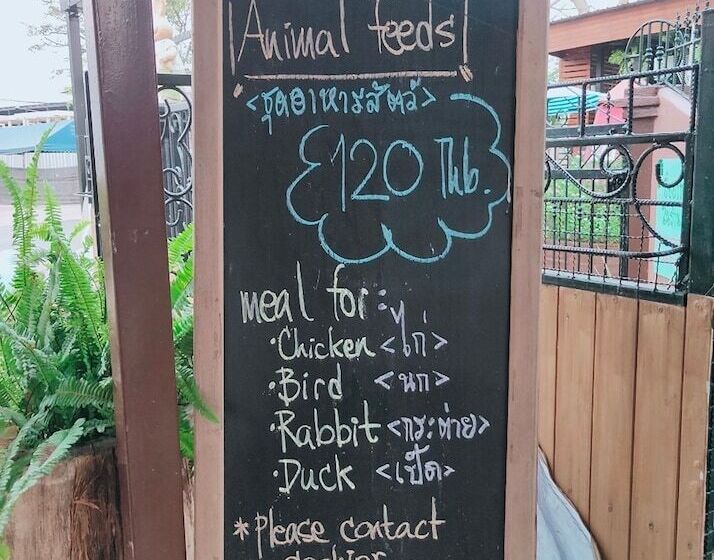 Animal feeds
<ชุดอาหารสัตว์>
120 ฿.
meal for:
·Chicken <ไก่>
·Bird <นก>
·Rabbit <กระต่าย>
·Duck <เป็ด>
*Please contact
cashier